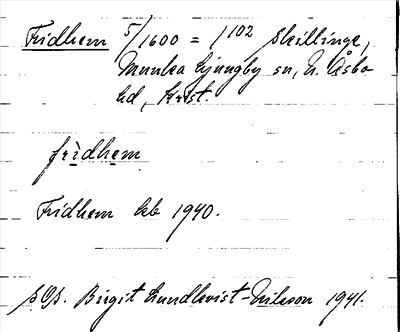 Fridhem 5/1600 = 1102 Skillinge,
Munka Ljungby sn, N. Åsbo
hd, Krist.
frìdhem
Fridhem kb 1940.
SOS. Birgit Lundkvist-Nilsson 1941.